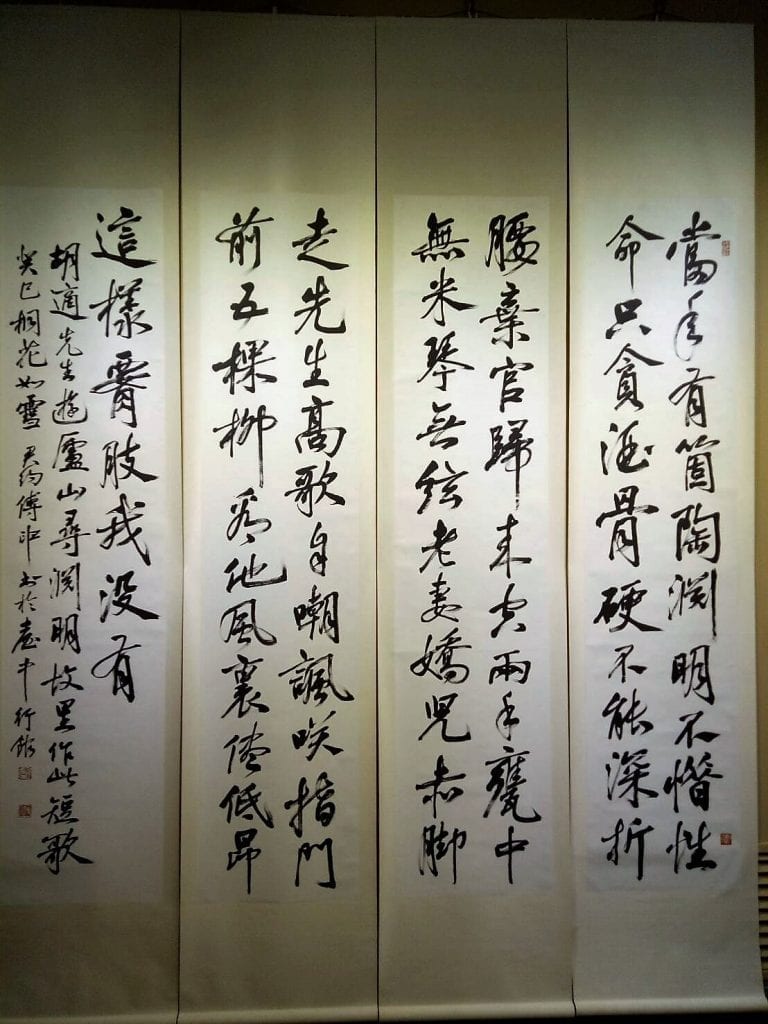 當年有箇陶淵明不惜性
命只貪酒骨硬不能深折
腰棄官歸來空兩手甕中
無米琴無絃老妻嬌兒赤腳
走先生高歌自嘲諷咲指門
前五棵柳看他風裏儘低昂
這樣腰肢我沒有
胡適先生遊廬山尋淵明故里作此短歌
癸巳桐花如雪 君約傅申書於臺中行館